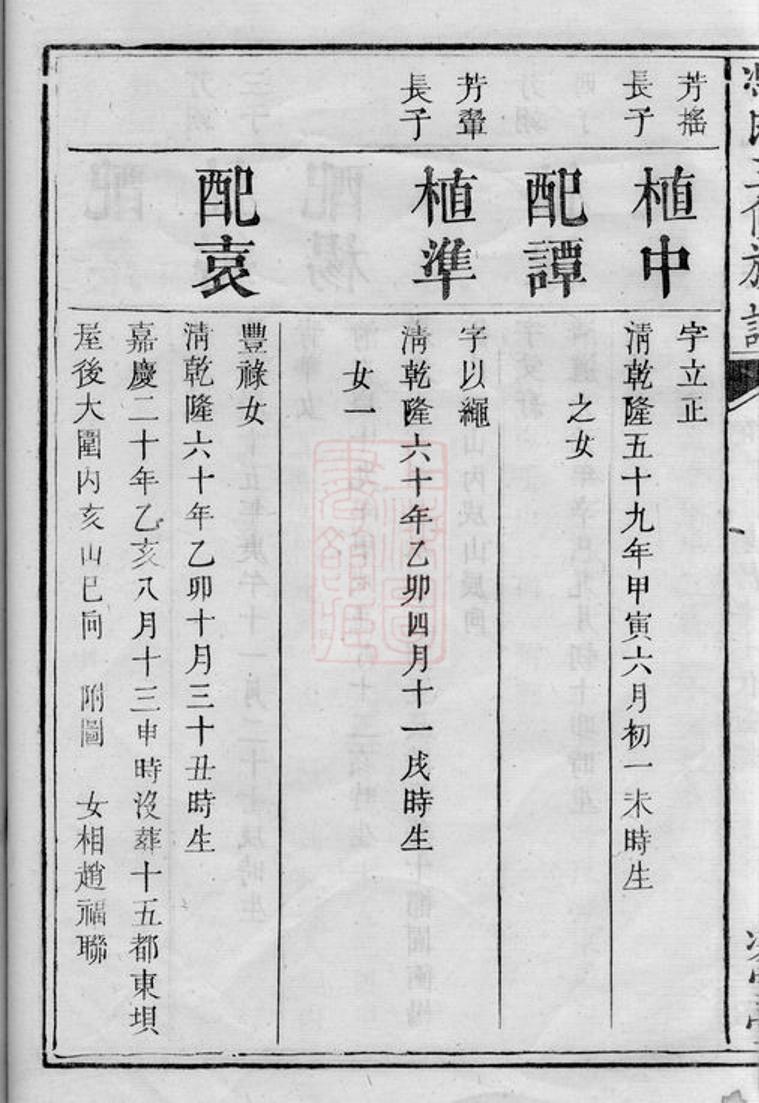 芳搖
長子
植中
字立正
清乾隆五十九年甲寅六月初一未時生
配譚
之女
芳輦
長子
植準
字以繩
清乾隆六十年乙卯四月十一戌時生
女一
配袁
豐祿女
清乾隆六十年乙卯十月三十丑時生
嘉慶二十年乙亥八月十三申時沒葬十五都東垻
屋後大圍內亥山巳向 附圖 女相趙福聯